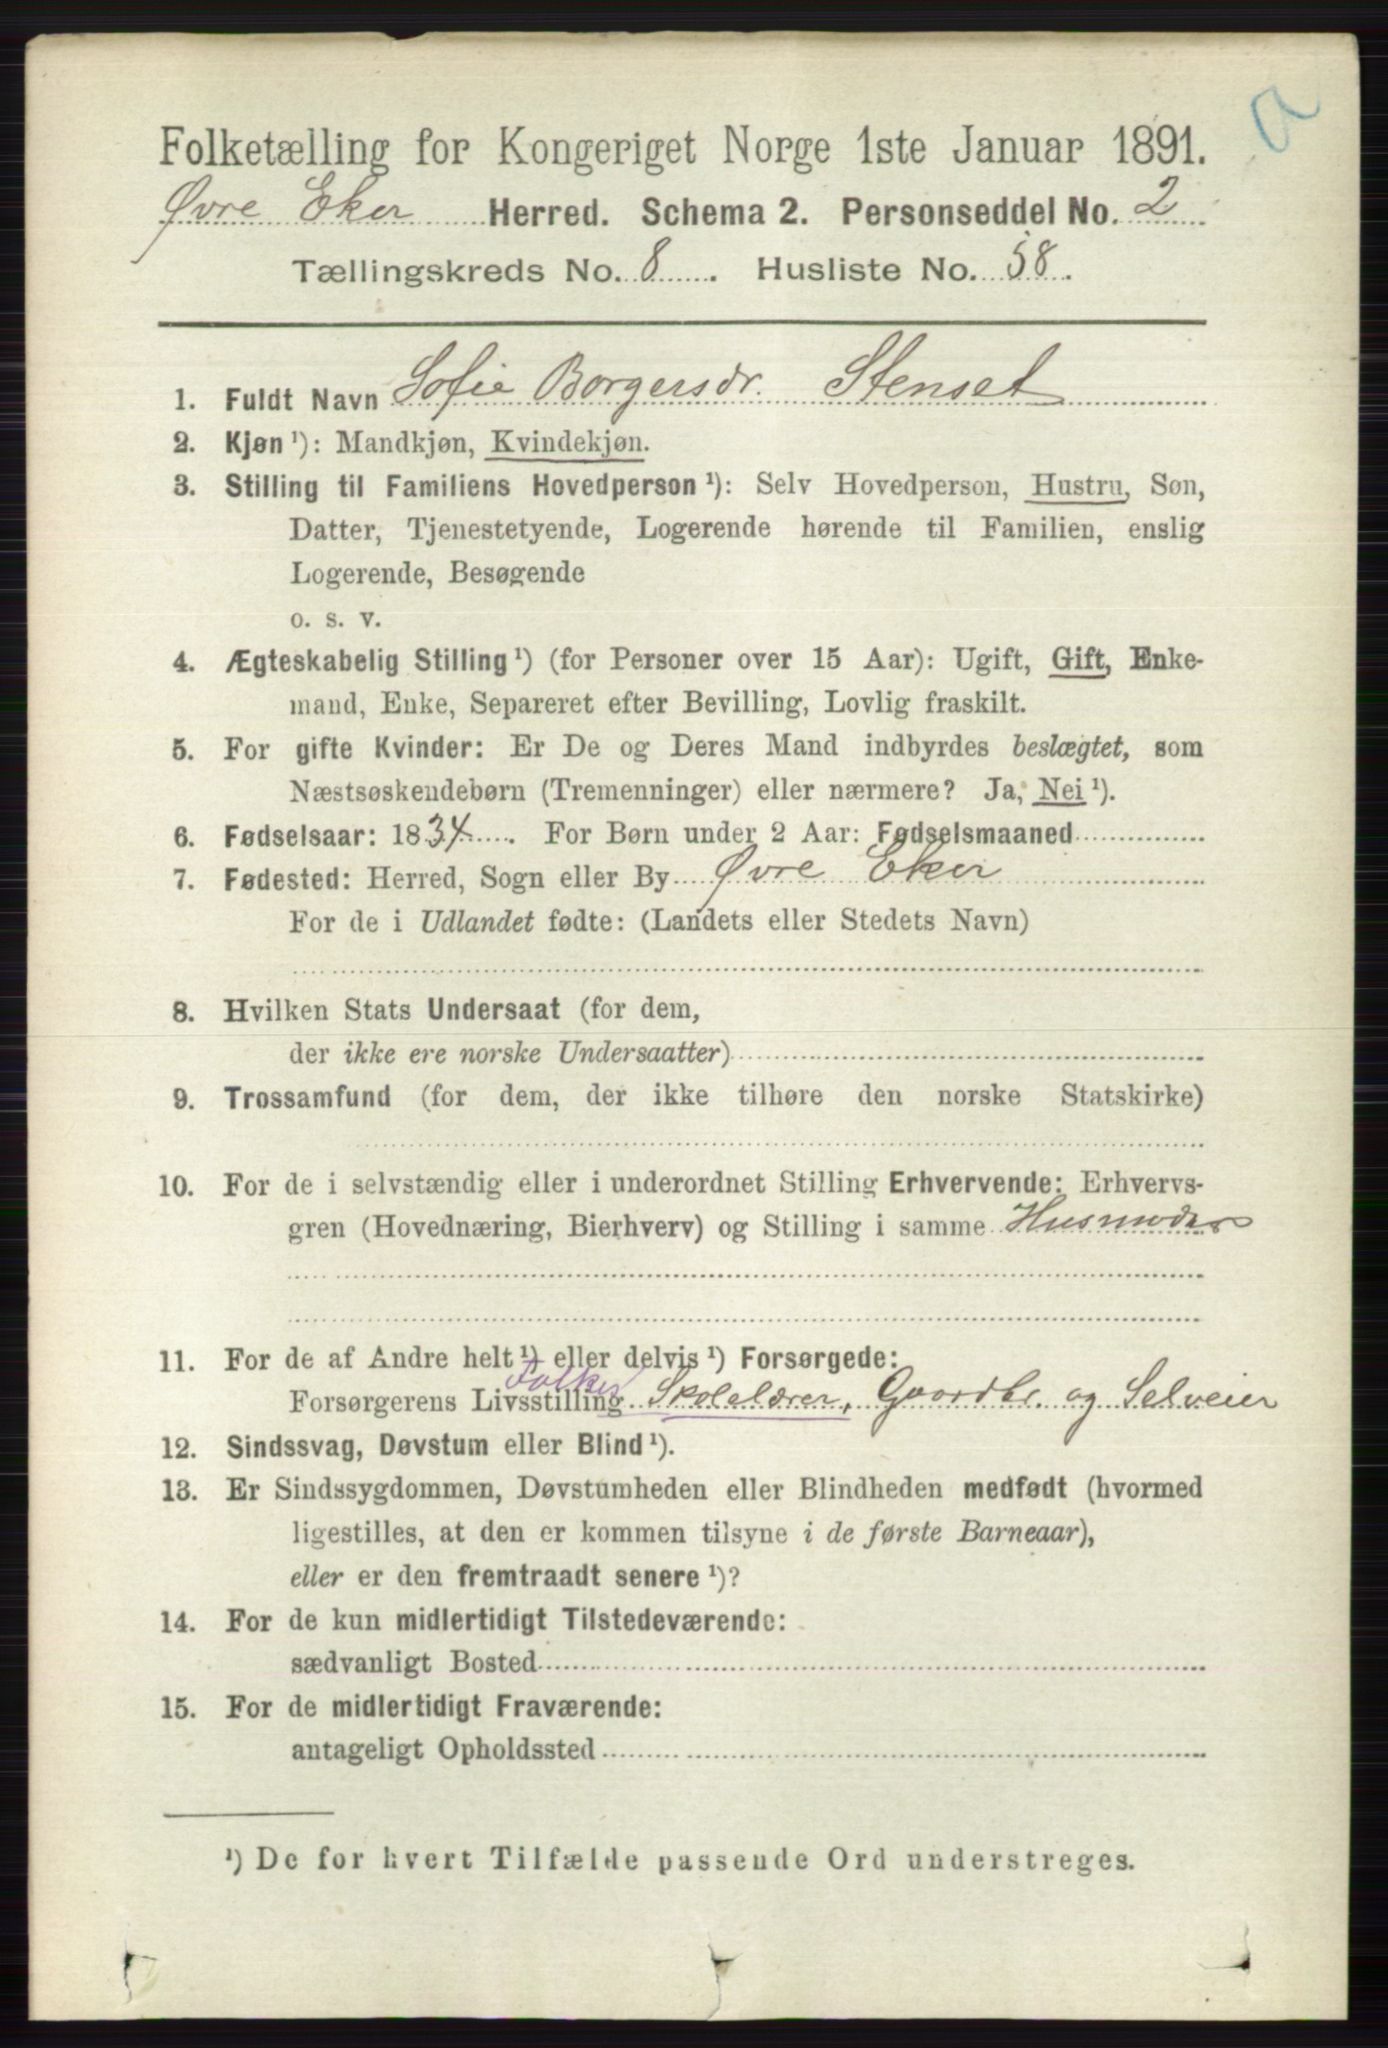 a
Folketælling for Kongeriget Norge 1ste Januar 1891.
Øvre Eker Herred. Schema 2. Personseddel No. 2
Tællingskreds No. 8. Husliste No. 58.
1. Fuldt Navn Sofie Borgersdr. Stenset
2. Kjøn ¹): Mandkjøn, Kvindekjøn.
3. Stilling til Familiens Hovedperson ¹): Selv Hovedperson, Hustru, Søn,
Datter, Tjenestetyende, Logerende hørende til Familien, enslig
Logerende, Besøgende
o. s. v.
4. Ægteskabelig Stilling ¹) (for Personer over 15 Aar): Ugift, Gift, Enke-
mand, Enke, Separeret efter Bevilling, Lovlig fraskilt.
5. For gifte Kvinder: Er De og Deres Mand indbyrdes beslægtet, som
Næstsøskendebørn (Tremenninger) eller nærmere? Ja, Nei ¹).
6. Fødselsaar: 1834. For Børn under 2 Aar: Fødselsmaaned
7. Fødested: Herred, Sogn eller By Øvre Eker
For de i Udlandet fødte: (Landets eller Stedets Navn)
8. Hvilken Stats Undersaat (for dem,
der ikke ere norske Undersaatter)
9. Trossamfund (for dem, der ikke tilhøre den norske Statskirke)
10. For de i selvstændig eller i underordnet Stilling Erhvervende: Erhvervs-
gren (Hovednæring, Bierhverv) og Stilling i samme Husmoder
11. For de af Andre helt ¹) eller delvis ¹) Forsørgede:
Forsørgerens Livsstilling Folkes Skolelærer, Gaardbr. og Selveier
12. Sindssvag, Døvstum eller Blind ¹).
13. Er Sindssygdommen, Døvstumheden eller Blindheden medfødt (hvormed
ligestilles, at den er kommen tilsyne i de første Barneaar),
eller er den fremtraadt senere ¹)?
14. For de kun midlertidigt Tilstedeværende:
sædvanligt Bosted
15. For de midlertidigt Fraværende:
antageligt Opholdssted
¹) De for hvert Tilfælde passende Ord understreges.